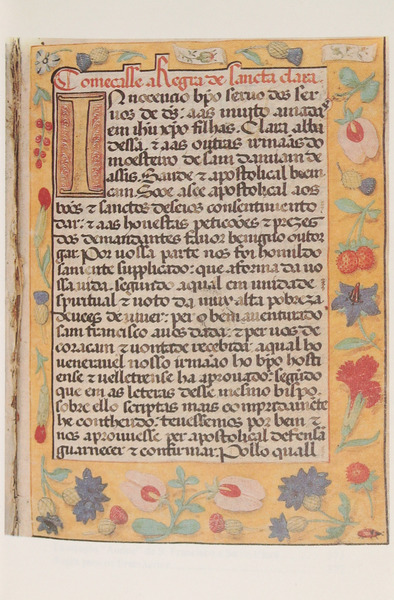 Comecasse a Regra de sancta clara
INnocencio bpo seruo dos ser
uos de ds: aas muito amada
em ihu xpo filhas. Clara abba
dessa, & aas outras irmaãs do
moesteiro de sam damiam de
assis. Saude & apostolical been
cam. Sooe a see apostolical aos
boõs & sanctos deseios consentimento
dar: & aas honestas petições & prezes
dos demandantes fauor benigno outor
gar. Por uossa parte nos foi homildo
samente supplicado: que a forma da uo
ssa uida. segundo a qual em unidade
spiritual & uoto da muy alta pobreza
deuees de uiuer: per o bem auenturado
sam francisco a uos dada: & per uos de
coracam & uontade recebida: a qual ho
uenerauel nosso irmaão ho bpo hosti
ense & uelletrense ha aprouado: segũdo
que em as leteras desse mesmo bispo,
sobre ello scriptas mais compridamẽte
he contheudo: teuessemos por bem &
nos aprouuesse, per apostolical defensã
guarnecer & confirmar. Pollo quall